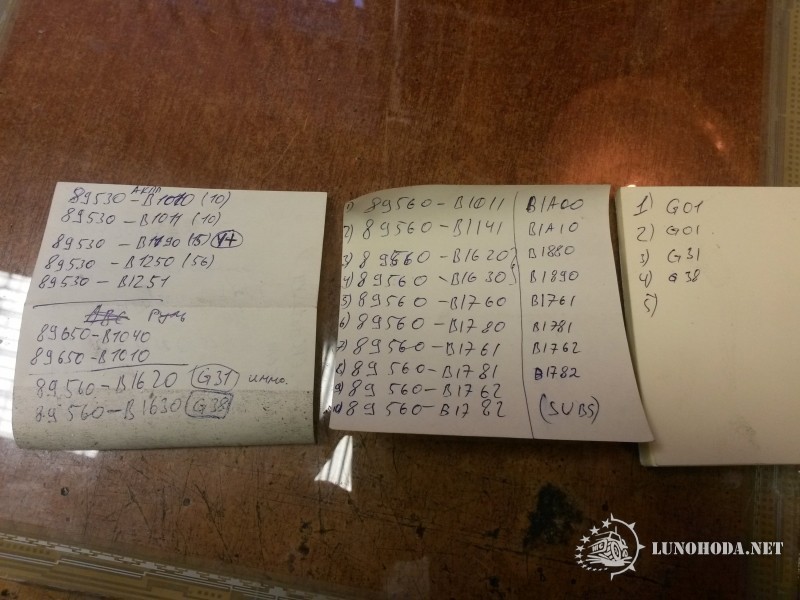 АКПП
89530-B1010 (10)
89530-B1011 (10)
89530 - B1190 (15) 4+
89530 - B1250 (56)
89530-B1251
ABC РУЛЬ
89650-B1040
89650-B1010
89560-B1620 (G31) иммо.
89560-B1630 G38
1) 89560-B1011 B1A00
2) 89560-B1141 B1A10
3) 89560-B1620 B1880
4) 89560-B1630 B1890
5) 89560-B1760 B1761
6) 89560-B1780 B1781
7) 89560-B1761 B1762
8) 89560-B1781 B1782
9) 89560-B1762
10) 89560-B1782 (SUBS)
1) G01
2) G01.
3) G31
4) G38
5)
LUNOHODA.NET